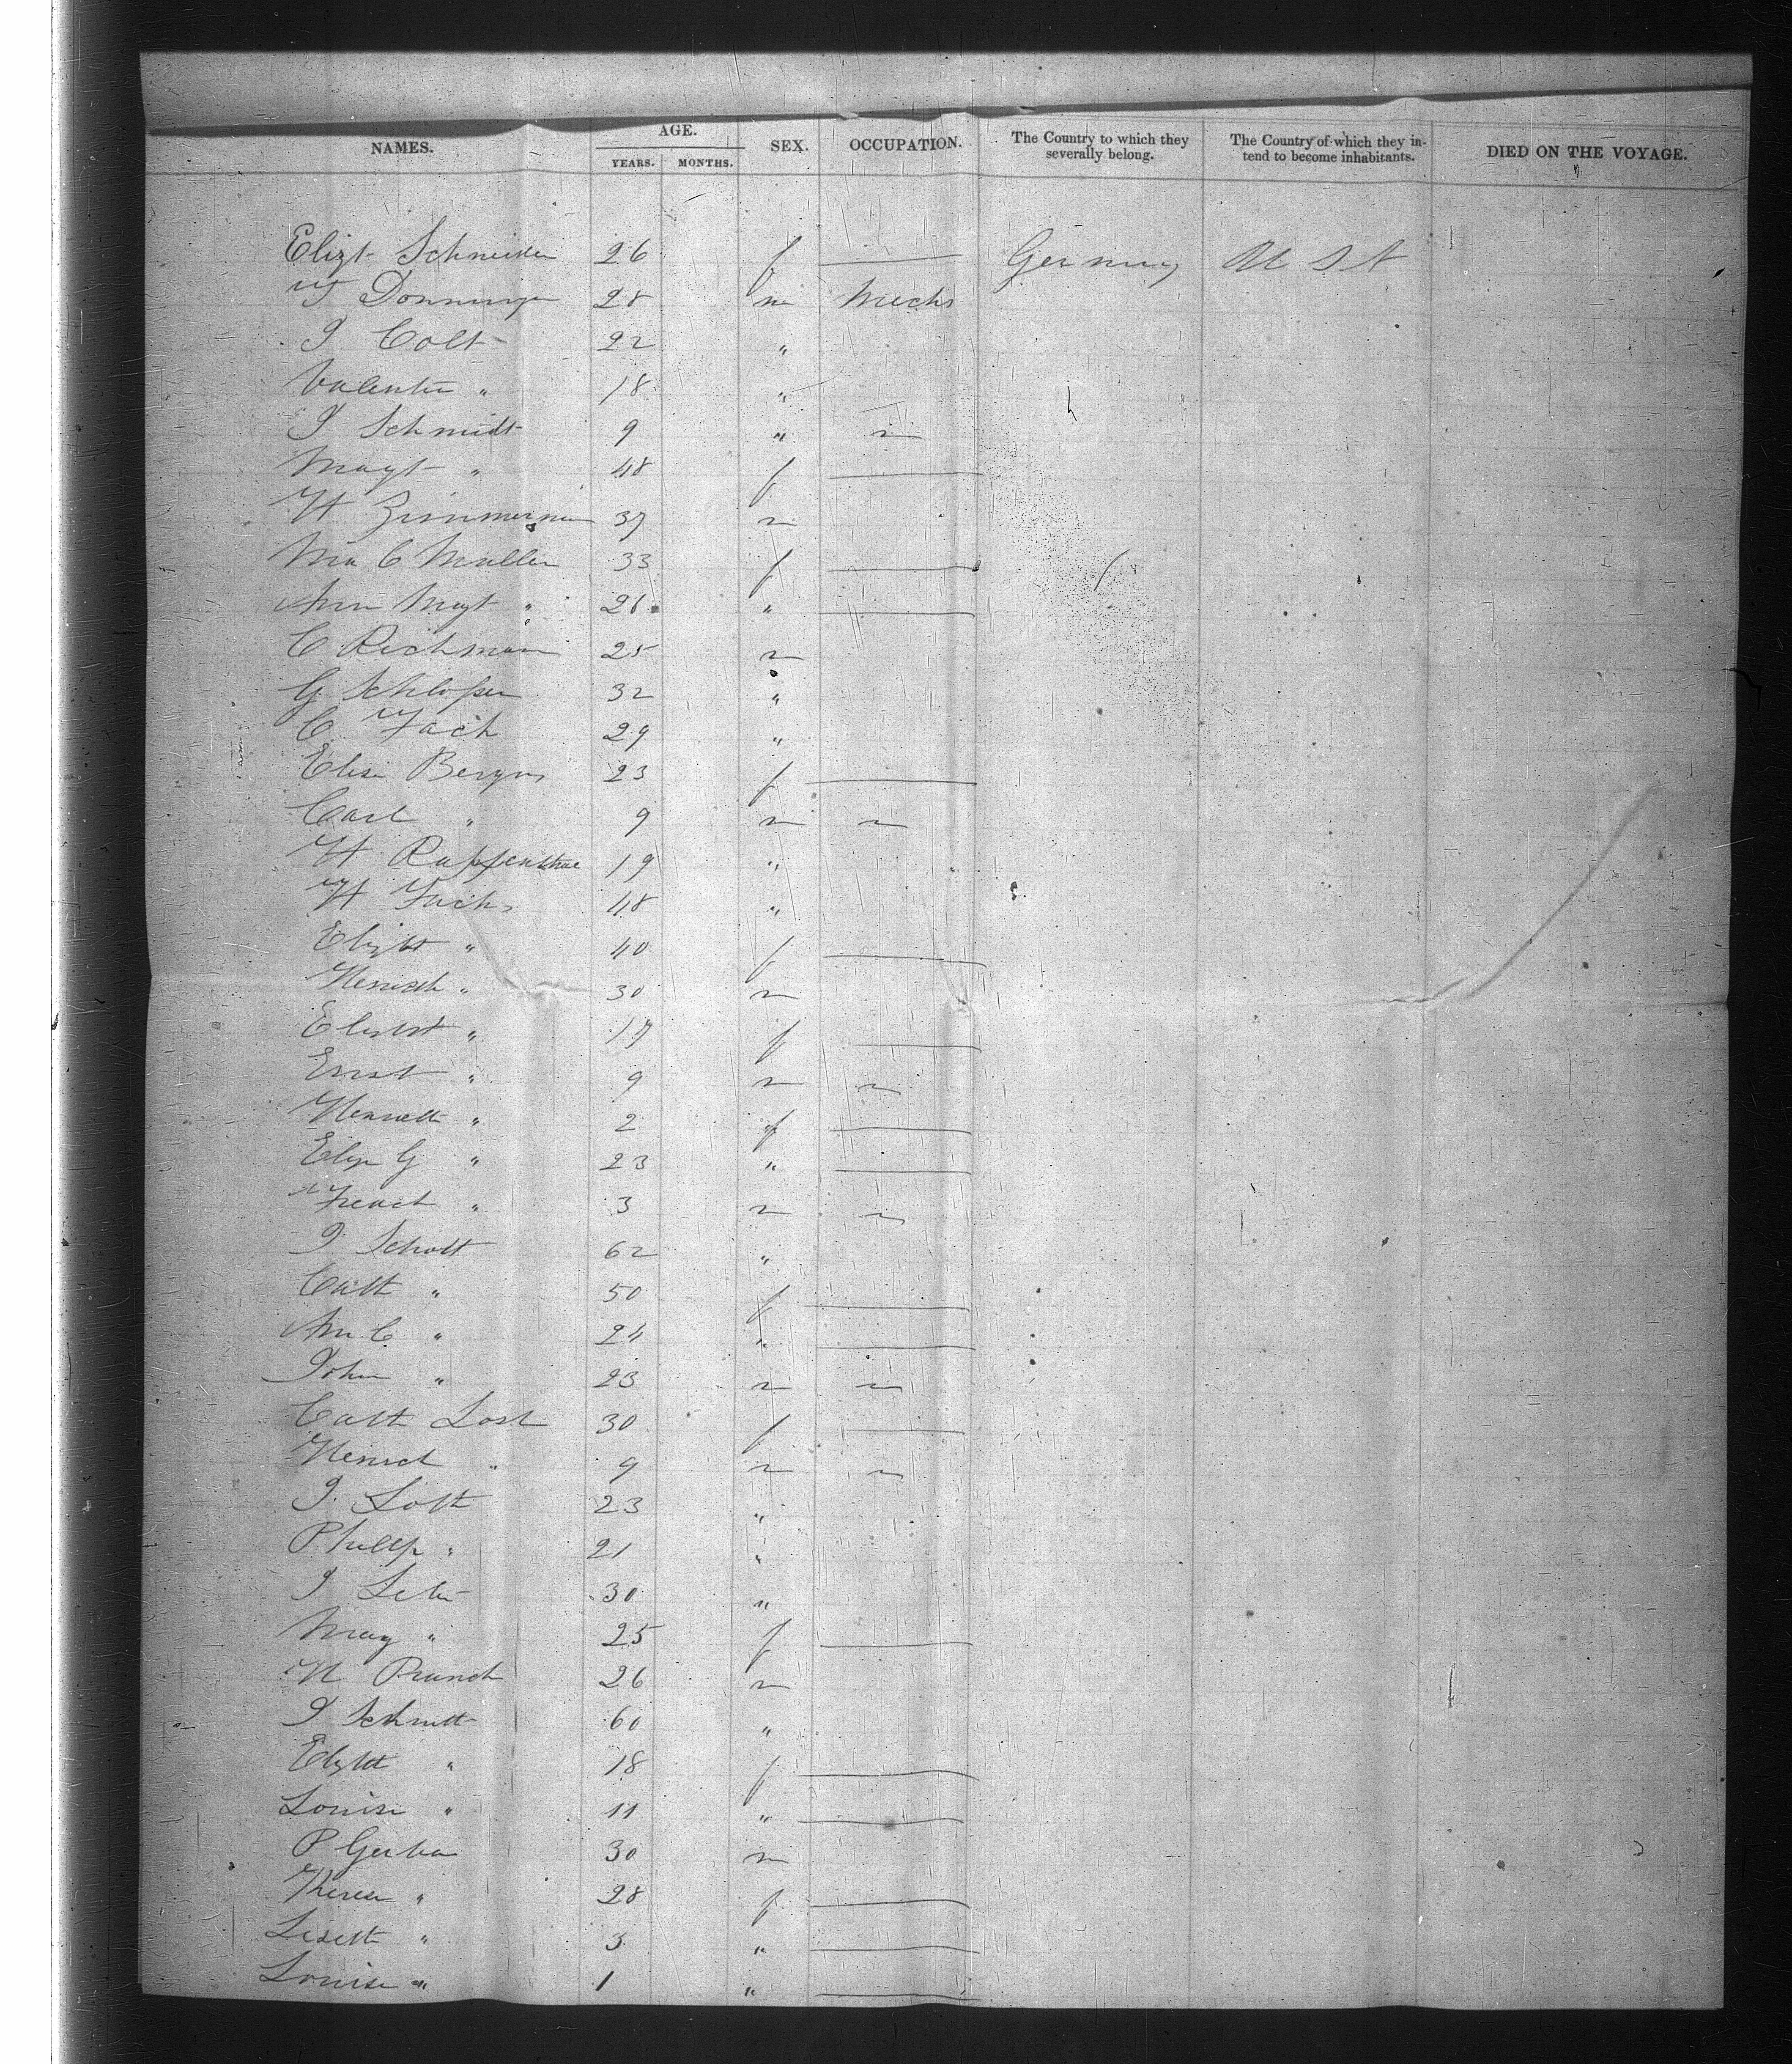 NAMES. AGE. YEARS. MONTHS. SEX. OCCUPATION. The Country to which they severally belong. The Country of which they intend to become inhabitants. DIED ON THE VOYAGE.
Elizt Schneider 26 f — Germany U S A
28 m Mechs
J Colt 22 "
Valentin " 18 "
J Schmidt 9 " ~
Magt " 48 f —
H Zimmerman 37 m
Ma C Muller 33 f —
Ann Magt " 26 " —
C Richman 25 m
G Schlosser 32 "
C Fach 29 "
Elise 23 f —
Carl " 9 m ~
H Rappenthal 19 "
H Fachs 48 "
Elizbt " 40 f —
" 30 m
Elizbt " 17 f —
Ernst " 9 m ~
Henriett " 2 f —
Elise G " 23 " —
" 3 m ~
J Schott 62 "
Cath " 50 f —
An C " 24 " —
John " 23 m ~
Cath Lost 30 f —
Henrich " 9 m ~
J. Loth 23 "
Phillip " 21 "
J 30 "
May " 25 f —
26 m
J Schmitt 60 "
Elizbt " 18 f —
Louise " 11 " —
P Gerber 30 m
Therese " 28 f —
Lisett " 3 " —
Louise " 1 " —